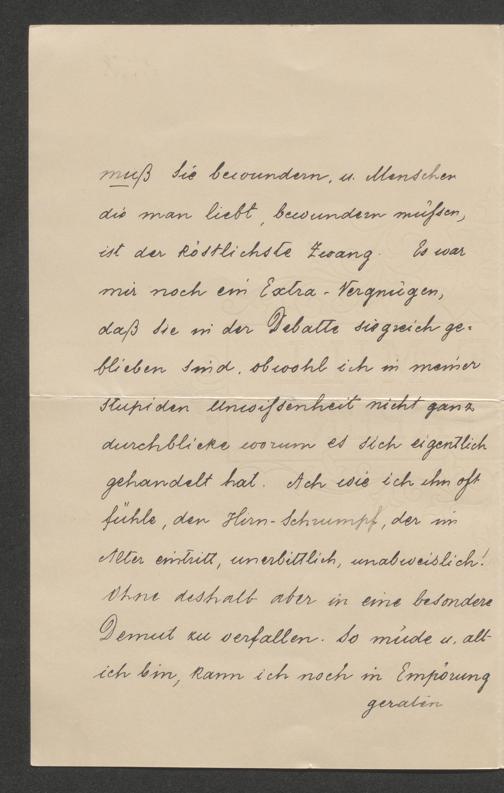 muß Sie bewundern, u. Menschen
die man liebt, bewundern müssen,
ist der köstlichste Zwang. Es war
mir noch ein Extra-Vergnügen,
daß Sie in der Debatte siegreich ge-
blieben sind, obwohl ich in meiner
stupiden Unwissenheit nicht ganz
durchblicke worum es sich eigentlich
gehandelt hat. Ach wie ich ihn oft
fühle, den Hirn-Schrumpf, der im
Alter eintritt, unerbittlich, unabweislich!
Ohne deshalb aber in eine besondere
Demut zu verfallen. So müde u. alt
ich bin, kann ich noch in Empörung
geraten